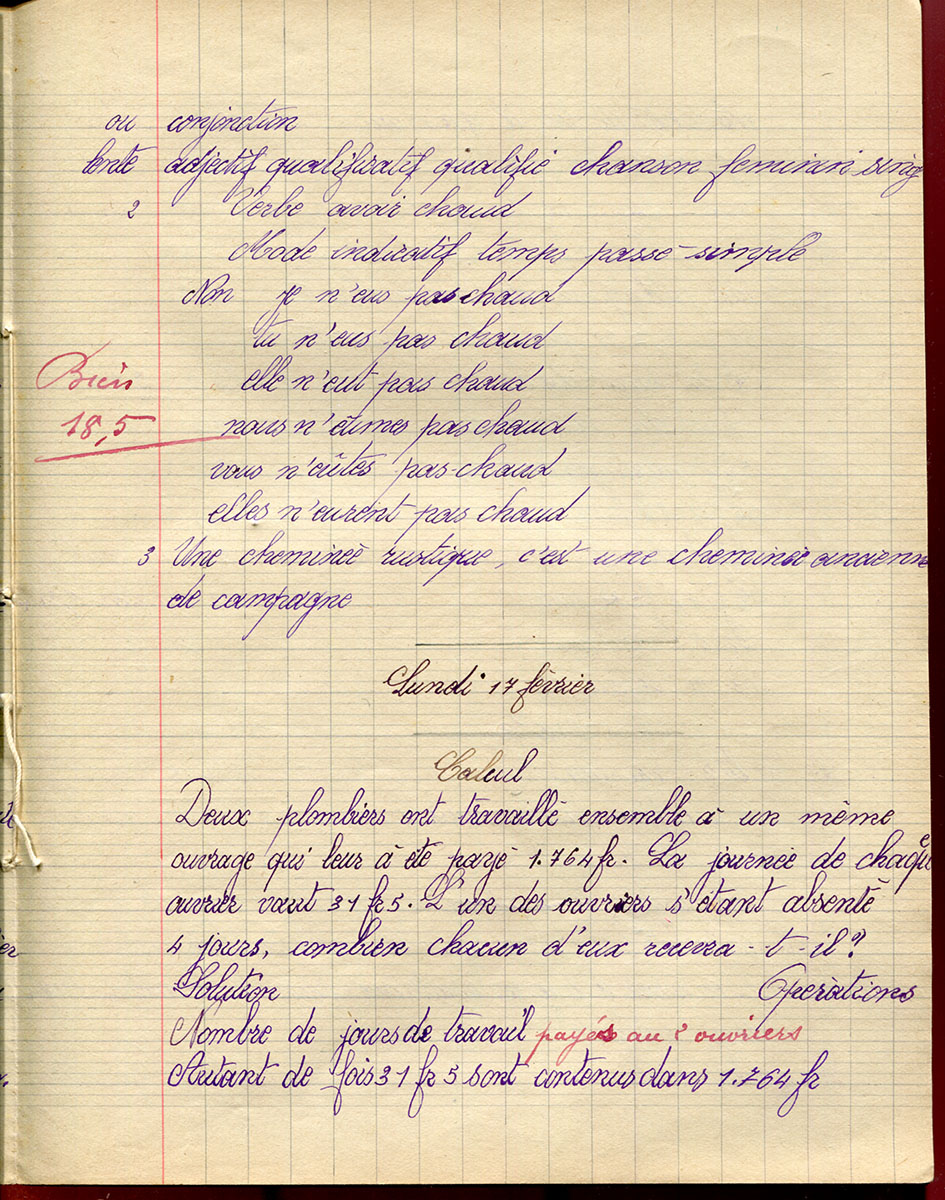 ou conjonction
lente adjectif qualificatif qualifie chanson feminin sing
2 Verbe avoir chaud
Mode indicatif temps passé-simple
Non je n'eus pas chaud
tu n'eus pas chaud
elle n'eut pas chaud
Bien
18,5 nous n'eûmes pas chaud
vous n'eûtes pas chaud
elles n'eurent pas chaud
3 Une cheminée rustique, c'est une cheminée ancienne
de campagne
Lundi 17 février
Calcul
Deux plombiers ont travaillé ensemble à un même
ouvrage qui leur à été payé 1.764 fr. La journée de chaque
ouvrier vaut 31 fr 5. L'un des ouvriers s'étant absenté
4 jours, combien chacun d'eux recevra-t-il?
Solution Opérations
Nombre de jours de travail payés au 2 ouvriers
Autant de fois 31 fr 5 sont contenus dans 1.764 fr